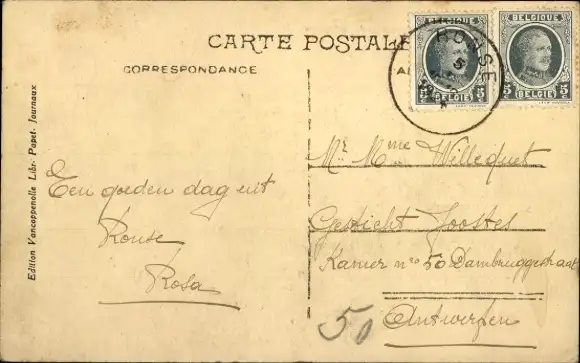 CARTE POSTALE
CORRESPONDANCE
BELGIQUE
5c 5c
BELGIE
BELGIQUE
5c 5c
BELGIE
RONSE
5
Edition Vancoppenolle Libr. Papet. Journaux
Een goeden dag uit
Ronse
Rosa
Mr. Mme Willequet
Gesticht Joostes
Kamer nro 50 Dambruggestraat
Antwerpen
50